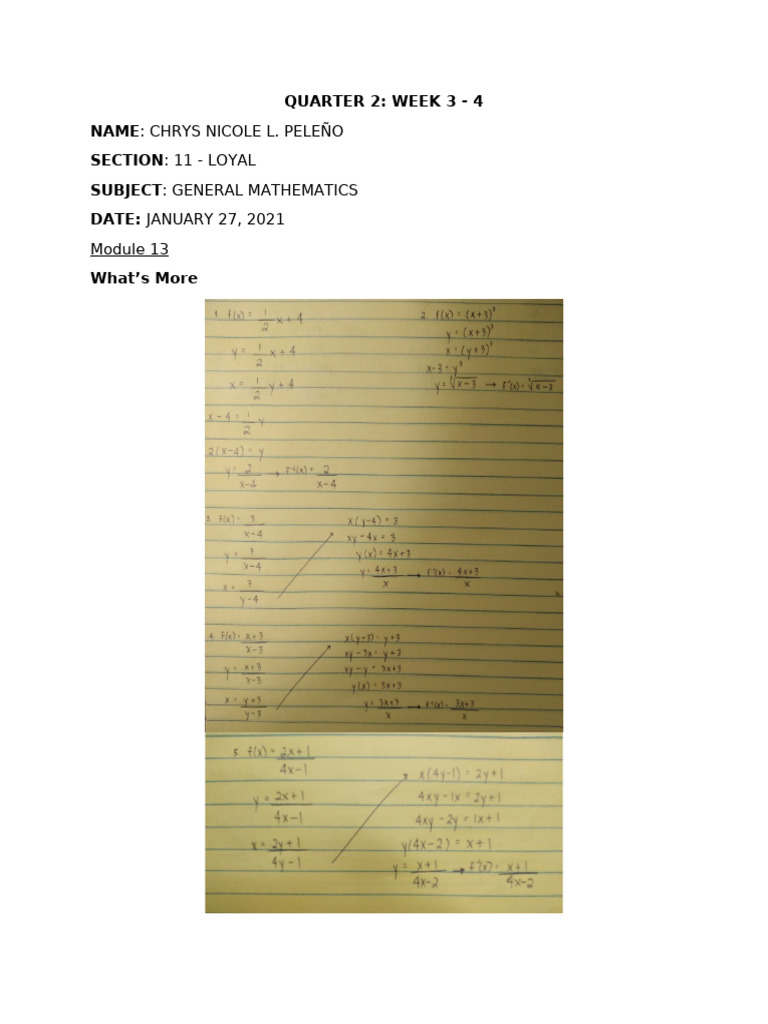 QUARTER 2: WEEK 3 - 4
NAME: CHRYS NICOLE L. PELEÑO
SECTION: 11 - LOYAL
SUBJECT: GENERAL MATHEMATICS
DATE: JANUARY 27, 2021
Module 13
What's More
1. f(x) = 1/2 x + 4
y = 1/2 x + 4
x = 1/2 y + 4
x - 4 = 1/2 y
2(x-4) = y
y = 2/x-4 → f⁻¹(x) = 2/x-4
2. f(x) = (x+3)³
y = (x+3)³
x = (y+3)³
x-3 = y³
y = ³√x-3 → f⁻¹(x) = ³√x-3
3. f(x) = 3/x-4
y = 3/x-4
x = 3/y-4
x(y-4) = 3
xy - 4x = 3
y(x) = 4x+3
y = 4x+3/x → f⁻¹(x) = 4x+3/x
4. f(x) = x+3/x-3
y = x+3/x-3
x = y+3/y-3
x(y-3) = y+3
xy - 3x = y+3
xy - y = 3x+3
y(x) = 3x+3
y = 3x+3/x → f⁻¹(x) = 3x+3/x
5. f(x) = 2x+1/4x-1
y = 2x+1/4x-1
x = 2y+1/4y-1
x(4y-1) = 2y+1
4xy - 1x = 2y+1
4xy - 2y = 1x+1
y(4x-2) = x+1
y = x+1/4x-2 → f⁻¹(x) = x+1/4x-2